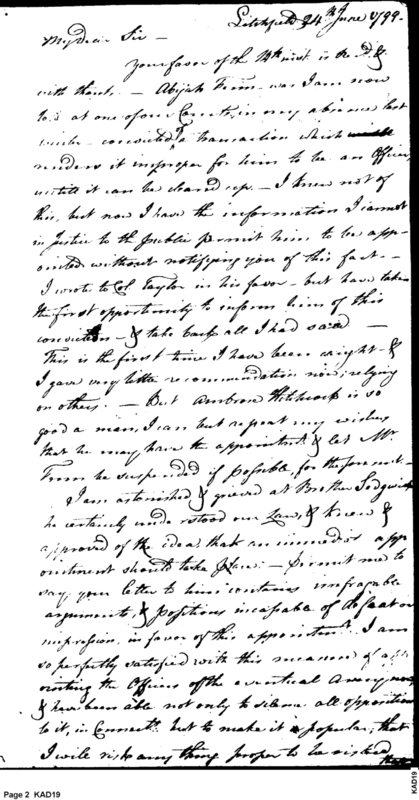 Litchfield 24th June 1799-
My Dear Sir -
your favor of the inst. is
with thanks, - Abijah was I am now
at one of our Courts, in my absence last
convicted of a transaction which
renders it improper for him to be an Officer,
untill it can be cleared up - I knew not of
this, but now I have the information I cannot
in Justice to the public permit him to be app-
ointed without notifying you of this fact. -
I wrote to Col. Taylor in his favor - but have taken
the first opportunity to inform him of this
conviction - & take back all I had said -
This is the first time I have been caught - &
I gave very little recommendation now, relying
on others. - But Ambrose Hitchcock is so
good a man, I can but repeat my wishes
that he may have the appointmt. & let Mr.
be suspended if possible, for the present. -
I am astonished & grieved at Brother Sedgwick
he certainly understood our Law, & knew &
approved of the idea, that an immediate app-
ointment should take place: - permit me to
say, your letter to him contains irrefragable
arguments, & positions incapable of
impression, in favor of this appointmt. I am
so perfectly satisfied with this measure of app-
ointing the Officers of the eventual Army,
& have been able not only to silence all opposition
to it, in Connectt. but to make it popular, that
I will risk any thing proper to be risked
that
Page 2 KAD19
KAD19